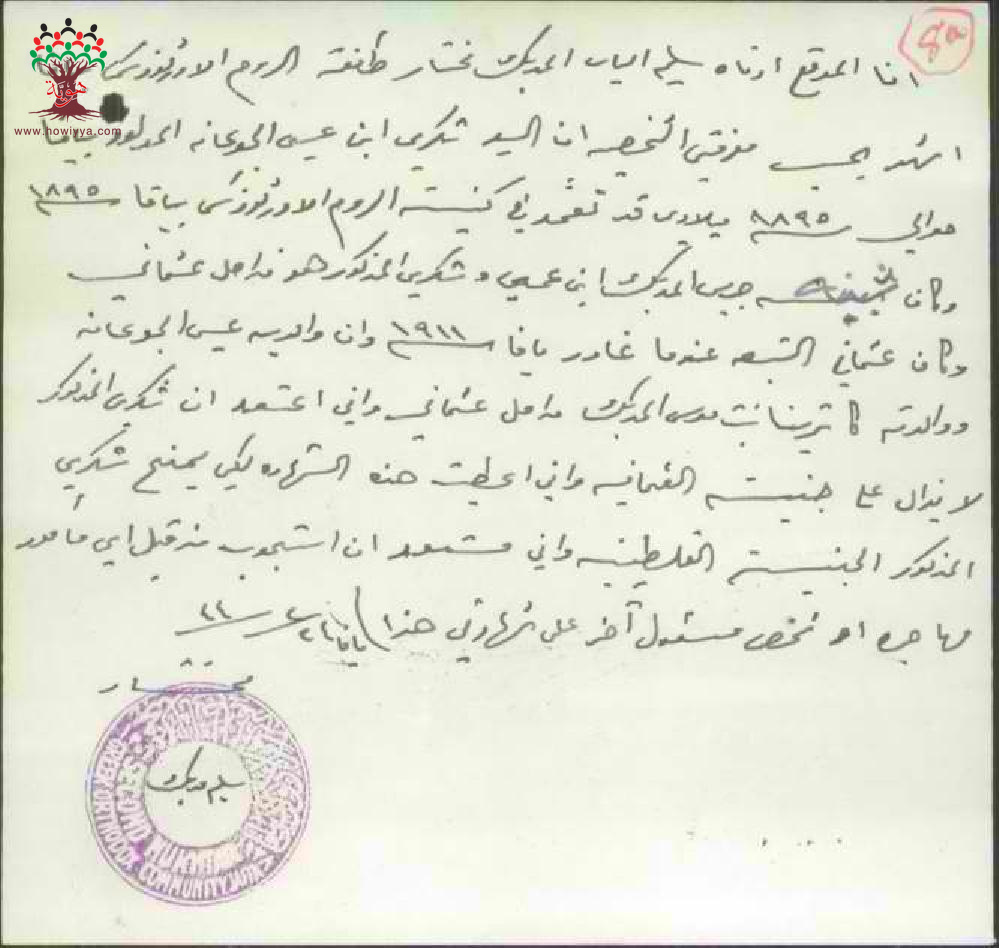 8a
www.howiyya.com
انا الموقع ادناه سليم الياس المدبك مختار طائفة الروم الاورثوذكس
اشهد بحسب معرفتي الشخصيه ان السيد شكري ابن عيسى الجوعانه المولود بيافا
حوالي سنة ١٨٩٥ ميلادي قد تعمد في كنيسة الروم الاورثوذكس بيافا سنة ١٨٩٥
وكان جريس المدبك ابن عمي وشكري المذكور هو من اصل عثماني
وكان عثماني التبعه عندما غادر يافا سنة ١٩١١ وان والديه عيسى الجوعانه
ووالدته كاترينا بنت موسى المدبك من اصل عثماني واني اعتقد ان شكري المذكور
لا يزال على جنسيته العثمانيه واني اعطيت هذه الشهاده لكي يمنح شكري
المذكور الجنسية الفلسطينيه واني مستعد ان استجوب من قبل اي مأمور
مهاجره او شخص مسئول آخر على شهادتي هذا يافا
مختار
سليم مدبك
ORTHODOX COMMUNITY JAFFA